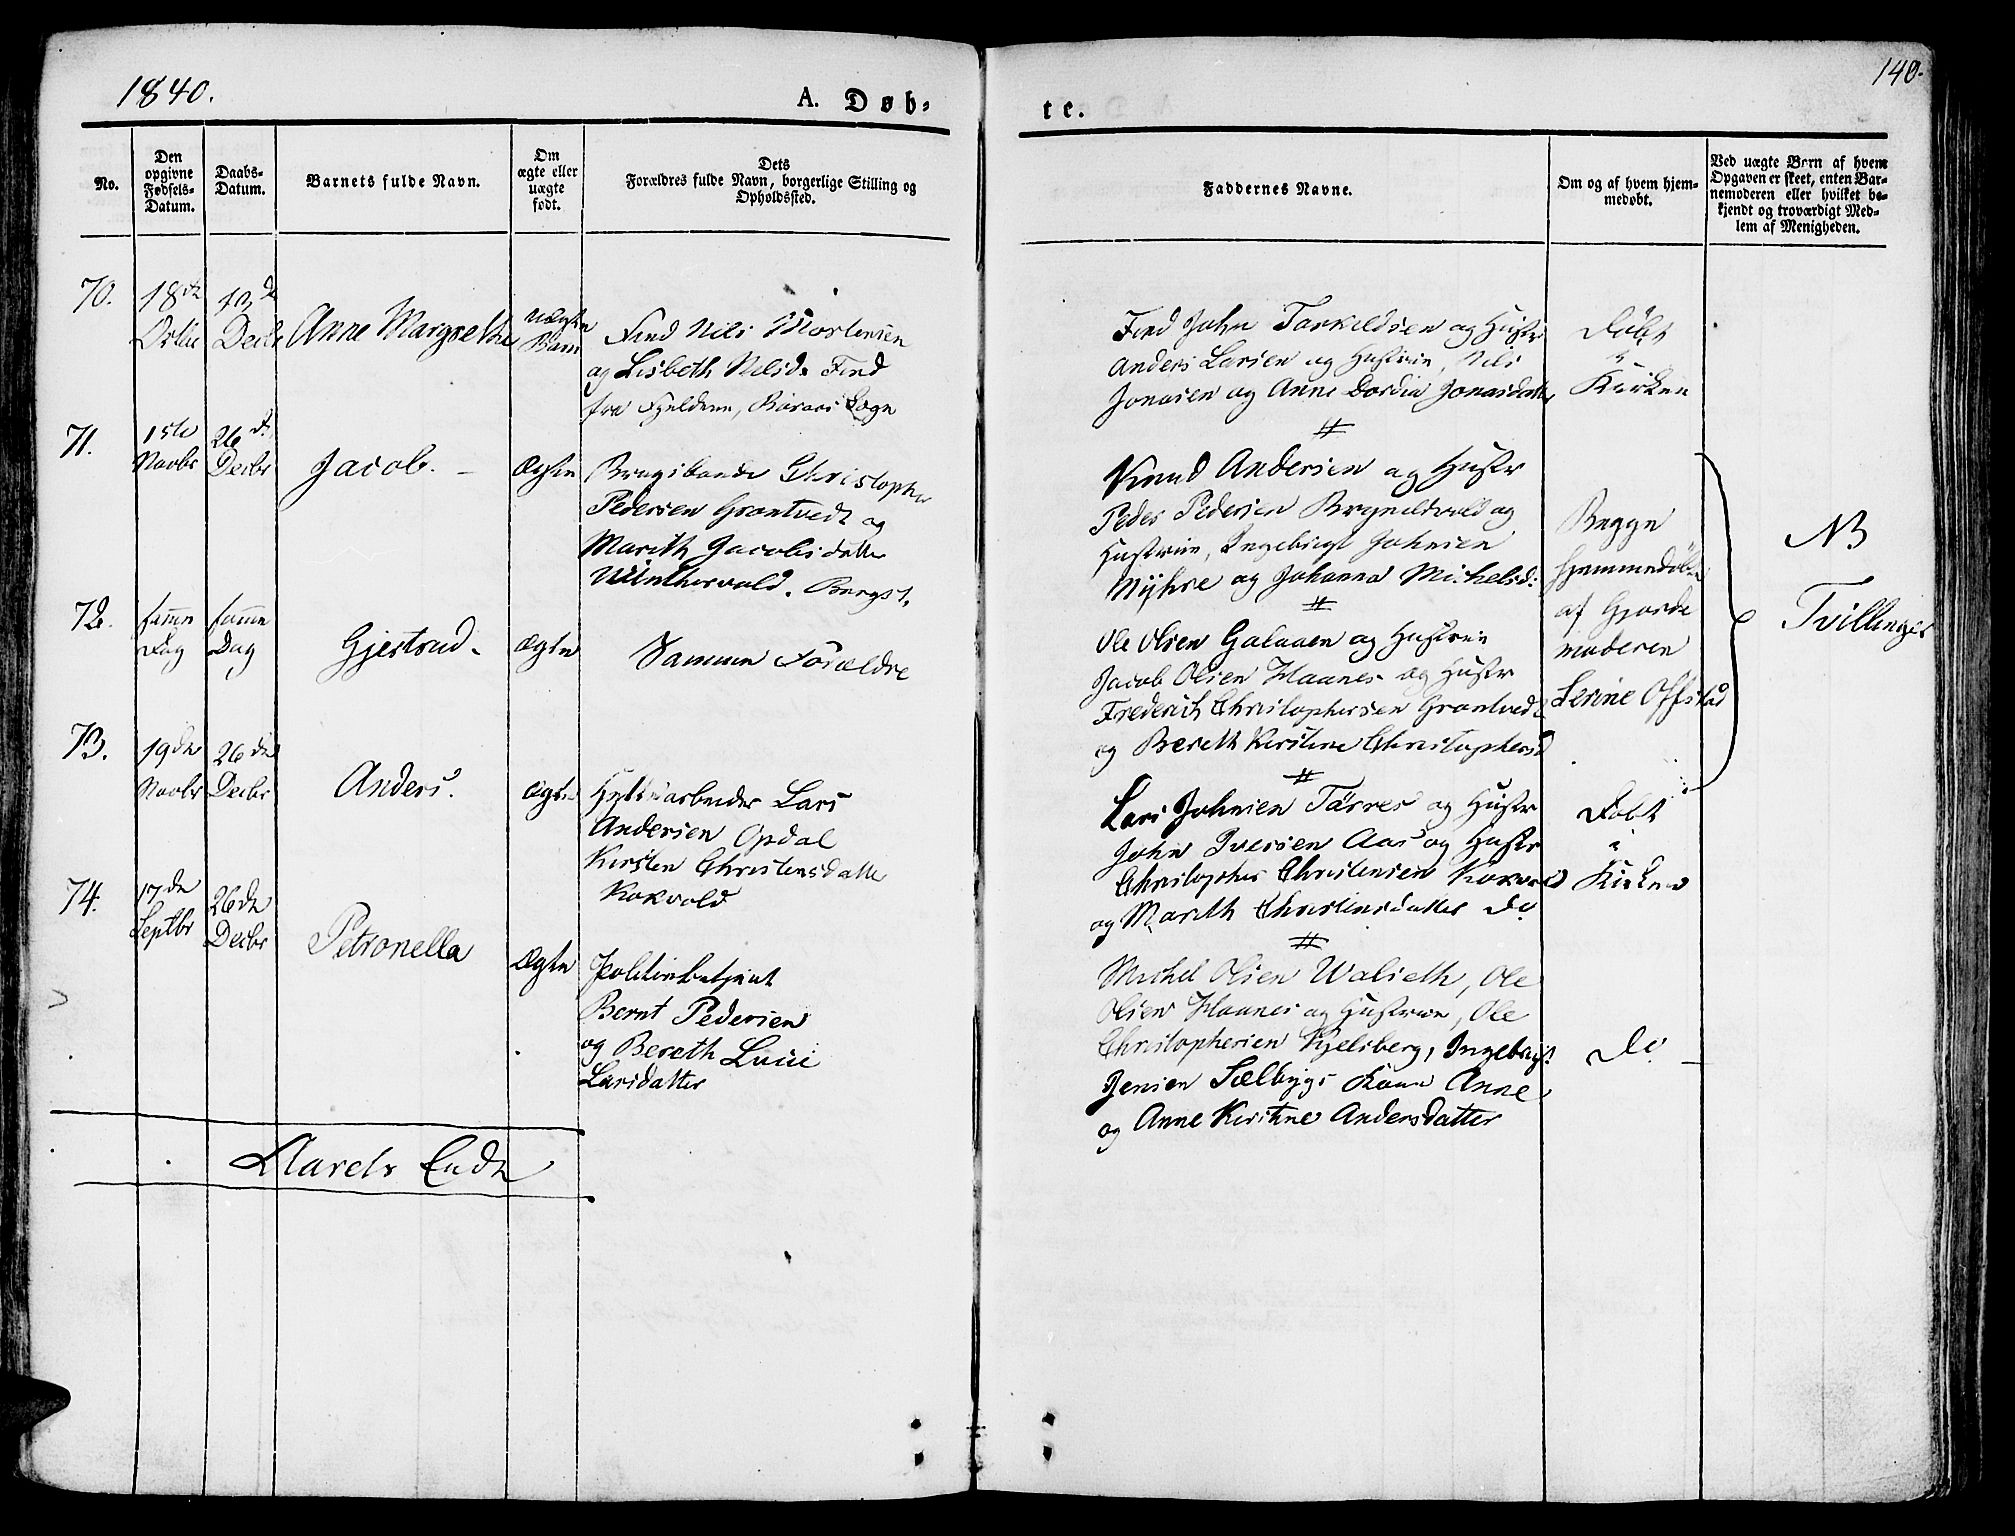 1840.
A. Døb-
te.
140.
No.
Den
opgivne
Fødsels-
Datum.
Daabs-
Datum.
Barnets fulde Navn.
Om
ægte eller
uægte
født.
Dets
Forældres fulde Navn, borgerlige Stilling og
Opholdssted.
Faddernes Navne.
Om og af hvem hjem-
medøbt.
Ved uægte Børn af hvem
Opgaven er skeet, enten Bar-
nemoderen eller hvilket be-
kjendt og troværdigt Med-
lem af Menigheden.
70.
18de
13de
Decbr
Anne Margrethe
uægte
Barn
Find Nils Mortensen
og Lisbeth Nilsd. Find
fra Fjeldene, Røraas Sogn
Find John Torkildsen og Hustr
Anders Larsen og Hustrue, Nils
Jonasen og Anne Dordia Jonasdatter
Døbt
i
Kirken
71.
15de
Novbr
26 d.
Decbr
Jacob.
Ægte
Brugsbonde Christopher
Pedersen Grøntvedt og
Marith Jacobsdatter
Winthervold. Bergst.
Knud Andersen og Hustr
Peder Pedersen Bryneldvold og
Hustrue, Ingebrigt Johnsen
Myhre og Johanna Michelsd:
Begge
Hjemmedøbte
af Gjorde
moderen
Serine Offstad
NB
Tvillinger
72.
samme
Dag
samme
Dag
Gjertrud.
Ægte
Samme Forældre
Ole Olsen Galaaen og Hustrue
Jacob Olsen Haanes og Hustr
Frederich Christophersen Grøntvedt
og Bereth Kirstine Christophersd
73.
19de
Novbr
26de
Decbr
Anders.
Ægte
Hyttearbeider Lars
Andersen Opdal
Kirsten Christensdatter
Kokvold
Lars Johnsen Tørres og Hustr
John Iversen Aas og Hustr
Christopher Christensen Kokvold
og Marith Christensdatter do
Døbt
i
Kirken
74.
17de
Septbr
26de
Decbr
Petronella
Ægte
Politiebetjent
Bernt Pedersen
og Bereth Lucie
Larsdatter
Michel Olsen Walseth, Ole
Olsen Haanes og Hustrue, Ole
Christophersen Kjelsberg, Ingebrigt
Jensen Sælbygs Kone Anne
og Anne Kirstine Andersdatter
do
Aarets Ende